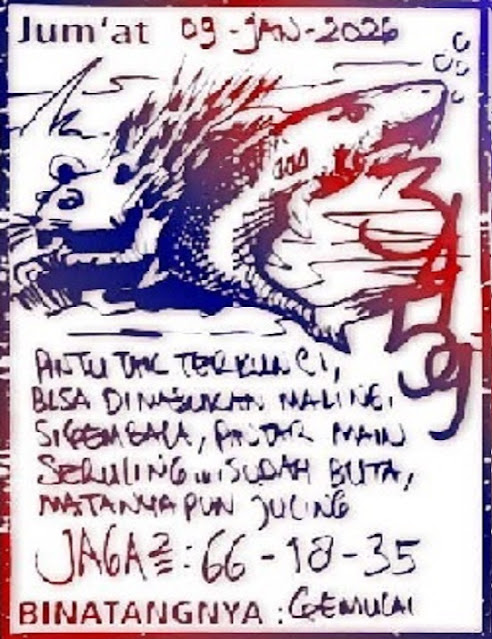 Jum'at 09-JAN-2026
PINTU TAK TERKUNCI,
BISA DIMASUKAN MALING.
SIGEMBALA, PINTAR MAIN
SERULING... SUDAH BUTA,
MATANYA PUN JULING
JAGA²: 66-18-35
BINATANGNYA : GEMULAI